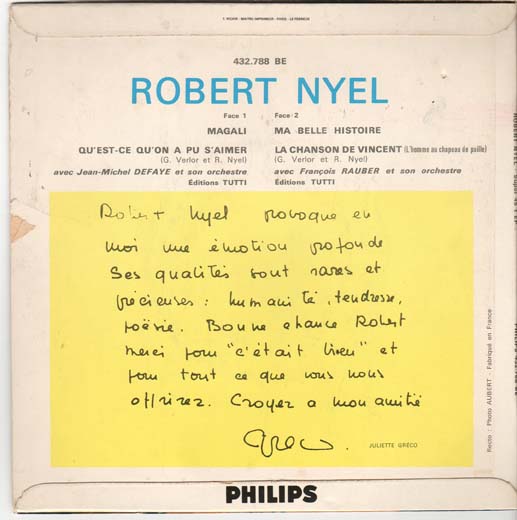 432.788 BE
ROBERT NYEL
Face 1
MAGALI
QU'EST-CE QU'ON A PU S'AIMER
(G. Verlor et R. Nyel)
avec Jean-Michel DEFAYE et son orchestre
Éditions TUTTI
Face 2
MA BELLE HISTOIRE
LA CHANSON DE VINCENT (L'homme au chapeau de paille)
(G. Verlor et R. Nyel)
avec François RAUBER et son orchestre
Éditions TUTTI
Robert Nyel provoque en
moi une émotion profonde
Ses qualités sont rares et
précieuses : humanité, tendresse,
poësie. Bonne chance Robert
merci pour "c'était bien" et
pour tout ce que vous nous
offrirez. Croyez a mon amitié
Gréco.
JULIETTE GRÉCO
Recto : Photo AUBERT - Fabriqué en France
PHILIPS